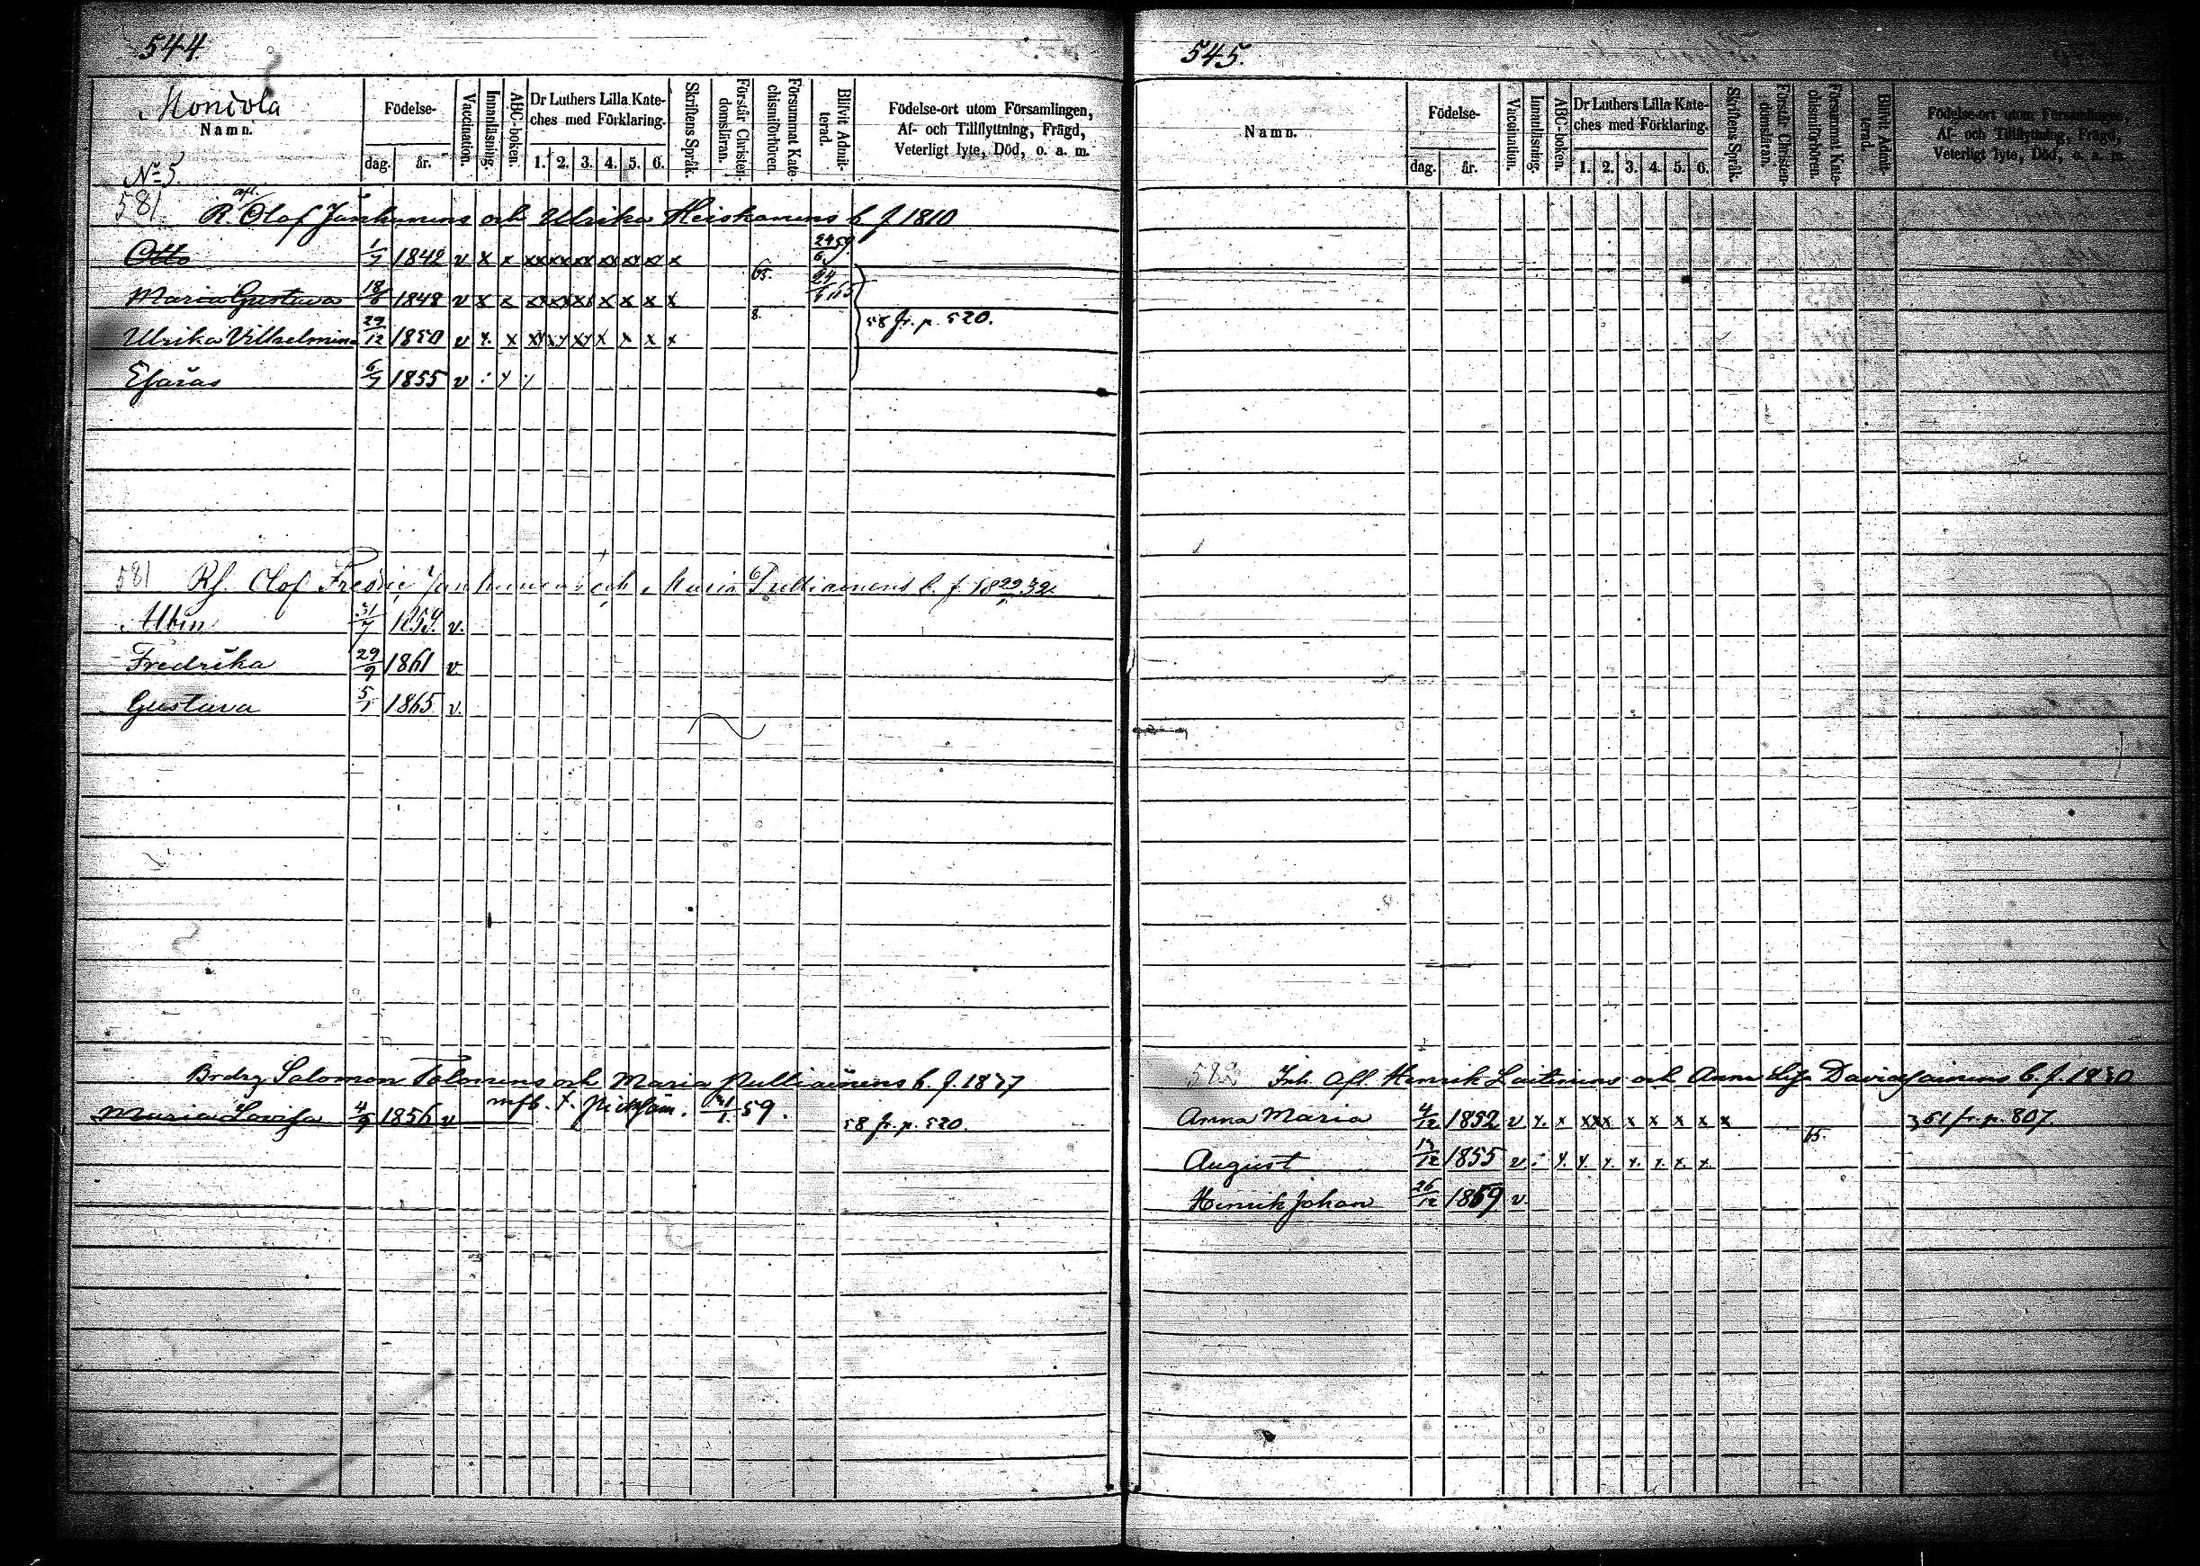 544.
Moniola
Namn.
Nº 5.
Födelse-
dag. år.
Vaccination.
Innanläsning.
ABC-boken.
Dr Luthers Lilla Kate-
ches med Förklaring.
1. 2. 3. 4. 5. 6.
Skriftens Språk.
Förstår Christen-
domsläran.
Försummat Kate-
chismiförhören.
Blifvit Admit-
terad.
Födelse-ort utom Församlingen,
Af- och Tillflyttning, Frägd,
Veterligt lyte, Död, o. a. m.
afl.
581 R. Olof Janhunens och Ulrika Heiskanens b f 1810
Otto 1/7 1842 v x x xx xx xx xx xx x x 29/6 59.
Maria Gustava 18/8 1848 v x x xx xxx x x x x x 65. 24/6 65
Ulrika Vilhelmina 29/12 1850 v x. x xx xx xx x x x x 8. 58 fr. p. 520.
Esaias 6/7 1855 v
581 Rf. Olof Fredric Janhunens och Maria Pulliainens b. f.
Albin 31/7 1859. v.
Fredrika 29/9 1861 v
Gustava 5/1 1865 v.
Brdrg Salomon Tolonens och Maria Pulliainens b. f. 1837
Maria Lovisa 4/9 1856 v mfb. t. 59. 58 fr. p. 520.
545.
Namn.
Födelse-
dag. år.
Vaccination.
Innanläsning.
ABC-boken.
Dr Luthers Lilla Kate-
ches med Förklaring.
1. 2. 3. 4. 5. 6.
Skriftens Språk.
Förstår Christen-
domsläran.
Försummat Kate-
chismiförhören.
Blifvit Admit-
terad.
Födelse-ort utom Församlingen,
Af- och Tillflyttning, Frägd,
Veterligt lyte, Död, o. a. m.
582 Inh. Afl. Henrik Laitinens och Anna Lisa Davidsainens b. f. 1830
Anna Maria 4/12 1852 v x. x xxx x x x x x 61 fr. p. 807.
August 1855 v x. x. x. x. x. x. x. 65.
Henrik Johan 26/12 1859 v